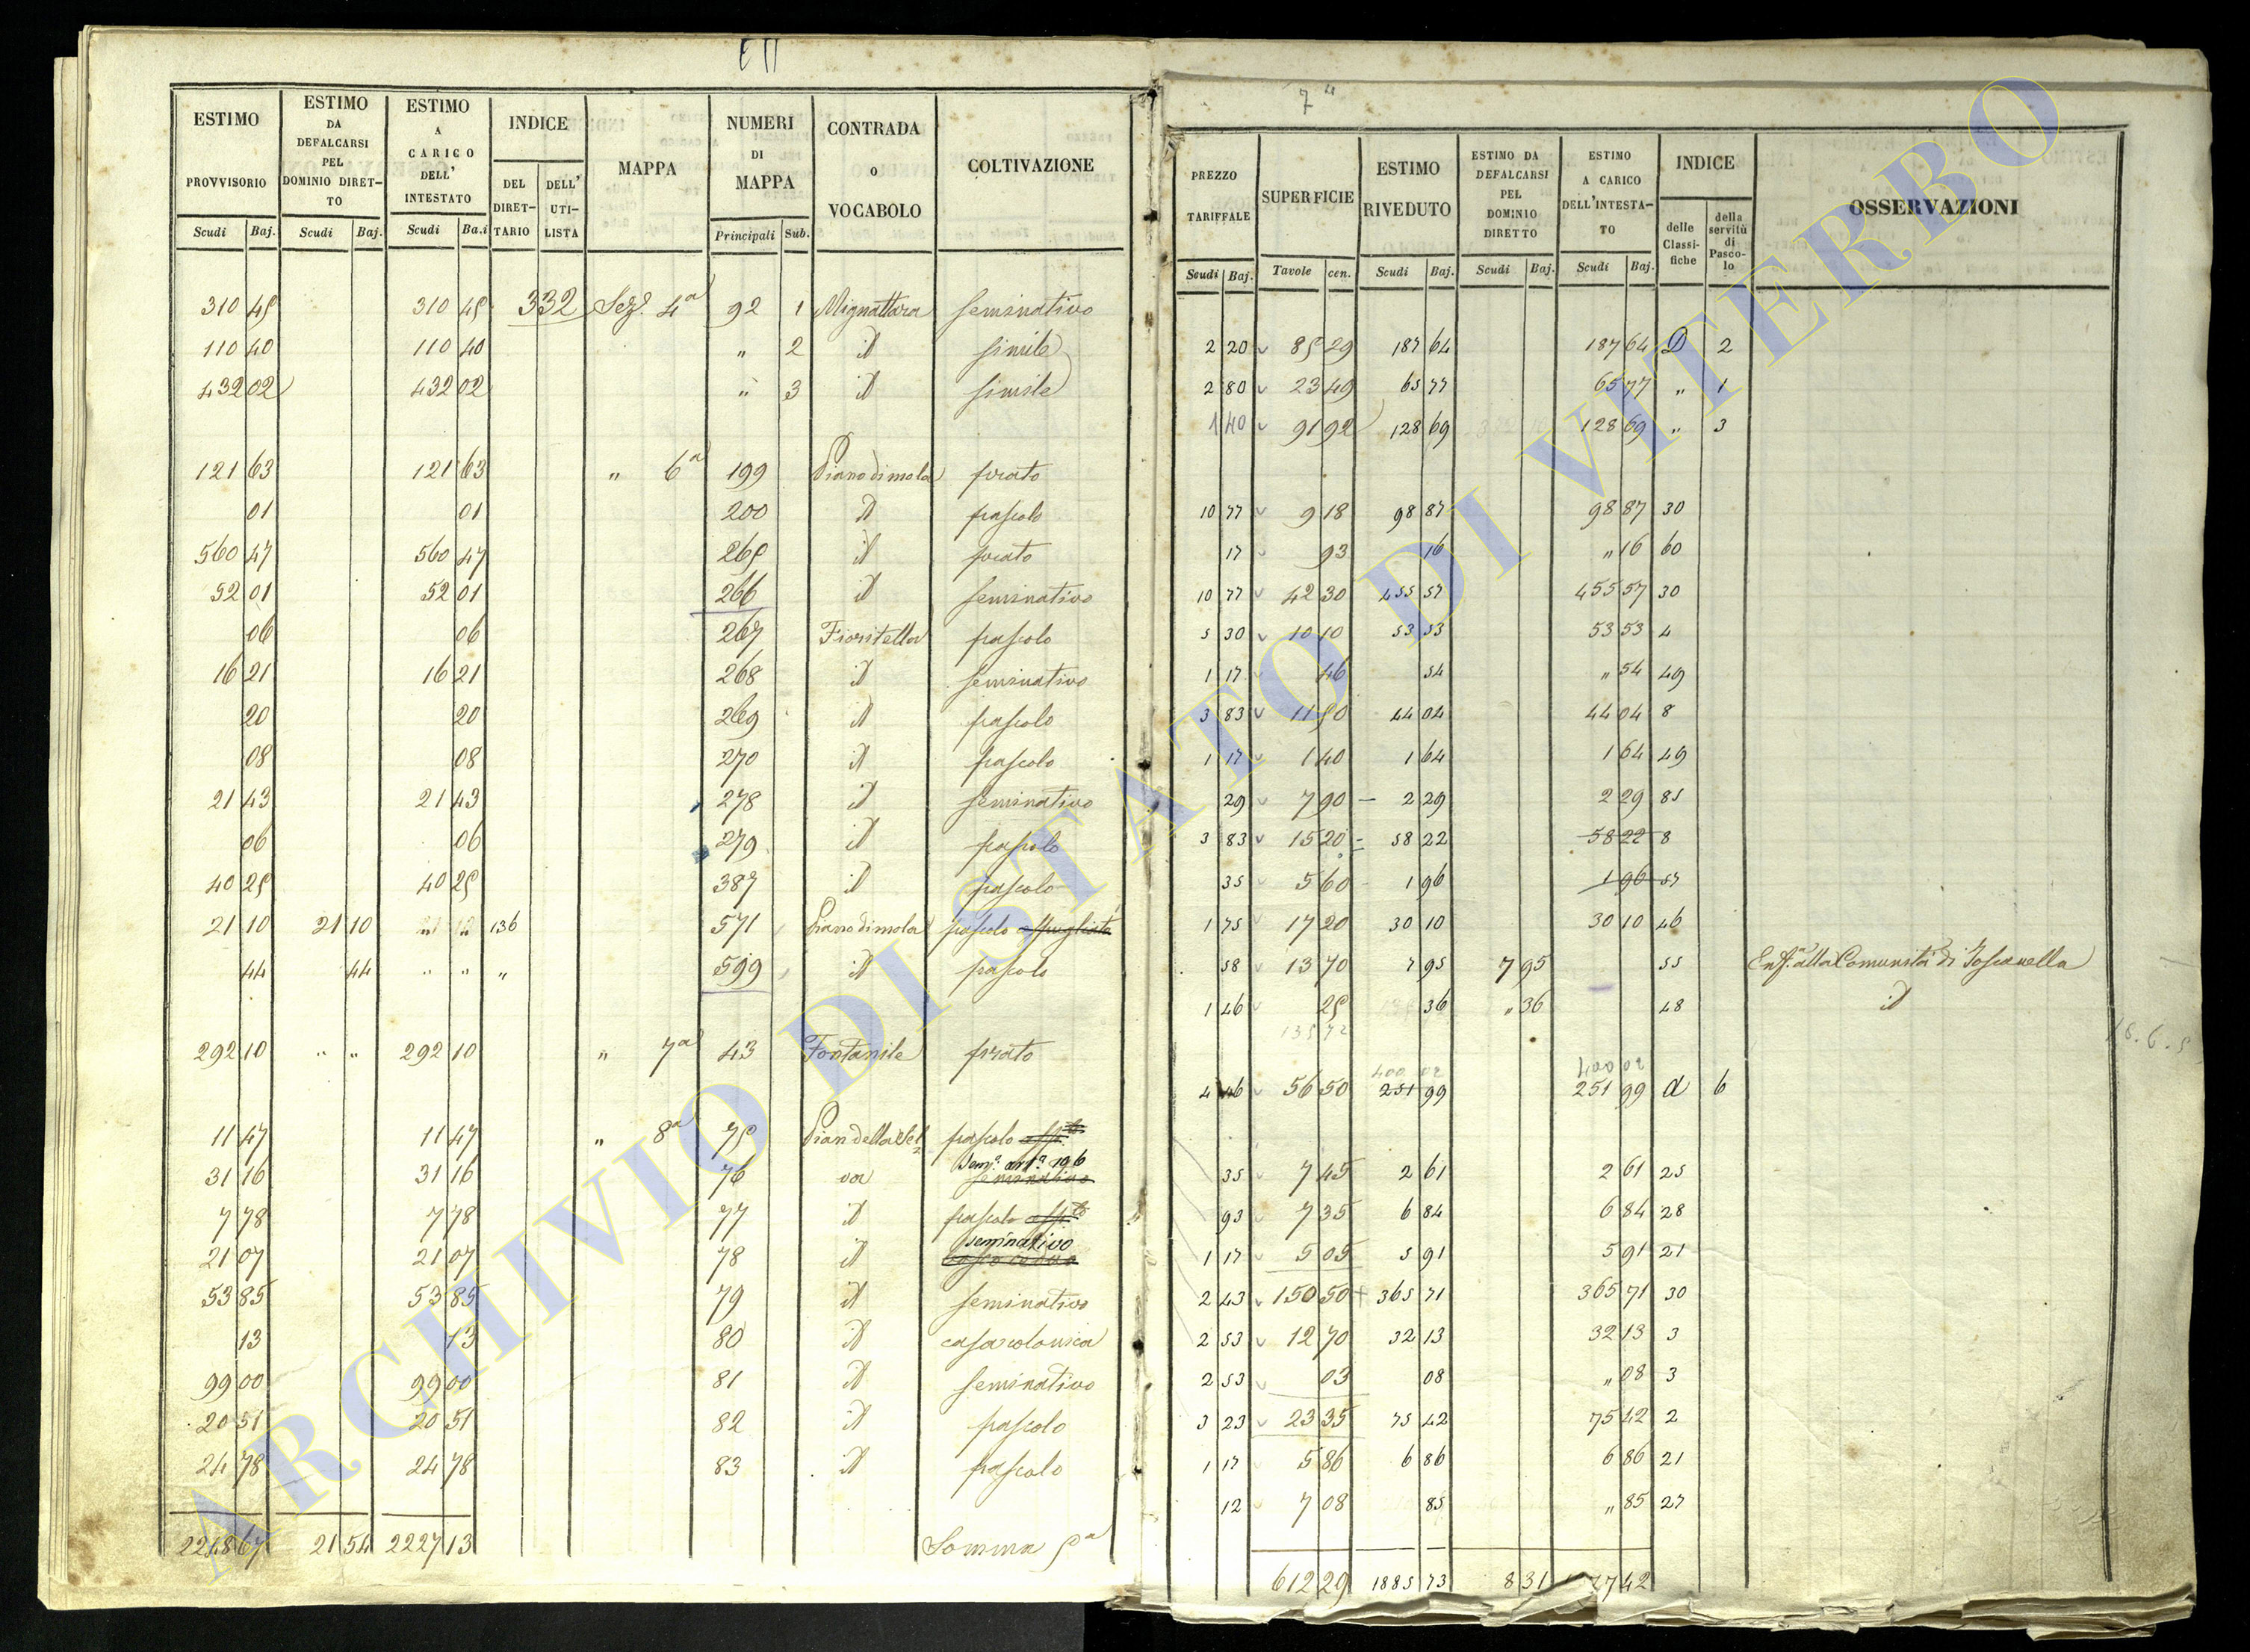 7ª
ESTIMO PROVVISORIO
ESTIMO DA DEFALCARSI PEL DOMINIO DIRET-TO
ESTIMO A CARICO DELL' INTESTATO
INDICE
DEL DIRET-TARIO
DELL' UTI-LISTA
MAPPA
NUMERI DI MAPPA
CONTRADA o VOCABOLO
COLTIVAZIONE
Scudi Baj. Scudi Baj. Scudi Ba.i Principali Sub.
310 45 310 45 332 Sez. 4ª 92 1 Mignattara seminativo
110 40 110 40 " 2 id simile
432 02 432 02 " 3 id simile
121 63 121 63 " 6ª 199 Piano di mola prato
01 01 200 id pascolo
560 47 560 47 265 id prato
52 01 52 01 266 id seminativo
06 06 267 Fioritella pascolo
16 21 16 21 268 id seminativo
20 20 269 id pascolo
08 08 270 id pascolo
21 43 21 43 278 id seminativo
06 06 279 id pascolo
40 25 40 25 387 id pascolo
21 10 21 10 " " 136 571 Piano di mola pascolo
44 44 " " " 599 id pascolo
292 10 " " 292 10 " 7ª 43 Fontanile prato
11 47 11 47 " 8ª 75 Pian della Sel pascolo
31 16 31 16 76 va seminativo
7 78 7 78 77 id pascolo
seminativo
21 07 21 07 78 id
53 85 53 85 79 id seminativo
13 13 80 id casa colonica
99 00 99 00 81 id seminativo
20 51 20 51 82 id pascolo
24 78 24 78 83 id pascolo
2248 67 21 54 2227 13 Somma 5ª
PREZZO TARIFFALE
SUPERFICIE
ESTIMO RIVEDUTO
ESTIMO DA DEFALCARSI PEL DOMINIO DIRETTO
ESTIMO A CARICO DELL'INTESTA-TO
INDICE
delle Classi-fiche
della servitù di Pasco-lo
OSSERVAZIONI
Scudi Baj. Tavole cen. Scudi Baj. Scudi Baj. Scudi Baj.
2 20 85 29 187 64 187 64 D 2
2 80 23 49 65 77 65 77 " 1
1 40 91 92 128 69 128 69 " 3
10 77 9 18 98 87 98 87 30
17 93 16 " 16 60
10 77 42 30 455 57 455 57 30
5 30 10 10 53 53 53 53 4
1 17 46 54 " 54 49
3 83 11 50 44 04 44 04 8
1 17 1 40 1 64 1 64 49
29 7 90 2 29 2 29 85
3 83 15 20 58 22 58 22 8
35 5 60 1 96 1 96 57
1 75 17 20 30 10 30 10 46
58 13 70 7 95 7 95 55 Enf.ª alla Comunità di Toscanella
1 46 25 36 " 36 48 id
135 72
400 02 400 02
4 46 56 50 251 99 251 99 d 6
35 7 45 2 61 2 61 25
93 7 35 6 84 6 84 28
1 17 5 05 5 91 5 91 21
2 43 150 50 365 71 365 71 30
2 53 12 70 32 13 32 13 3
2 53 03 08 " 08 3
3 23 23 35 75 42 75 42 2
1 17 5 86 6 86 6 86 21
12 7 08 85 " 85 27
612 29 1885 73 8 31 77 42
ARCHIVIO DI STATO DI VITERBO